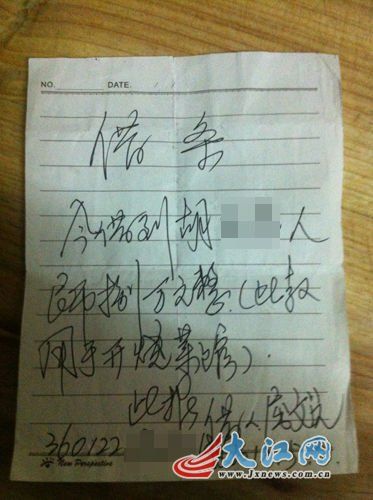 NO. DATE. / /
借条
今借到胡 人
民币捌万元整.(此款
用于开烧菜馆).
此据 借人
360122
New Perspective
大江网
www.jxnews.com.cn